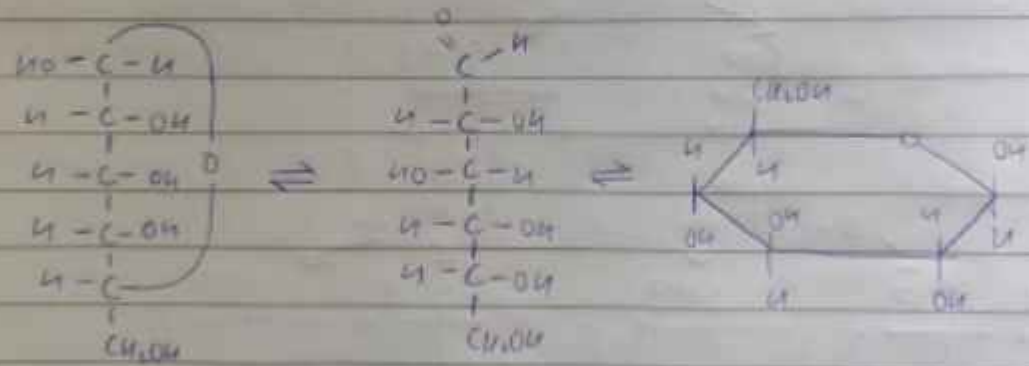 HO - C - H
H - C - OH
H - C - OH
H - C - OH
H - C
CH₂OH
O
⇌
O
C - H
H - C - OH
HO - C - H
H - C - OH
H - C - OH
CH₂OH
⇌
CH₂OH
O
H
H
OH
OH
H
H
OH
H
OH